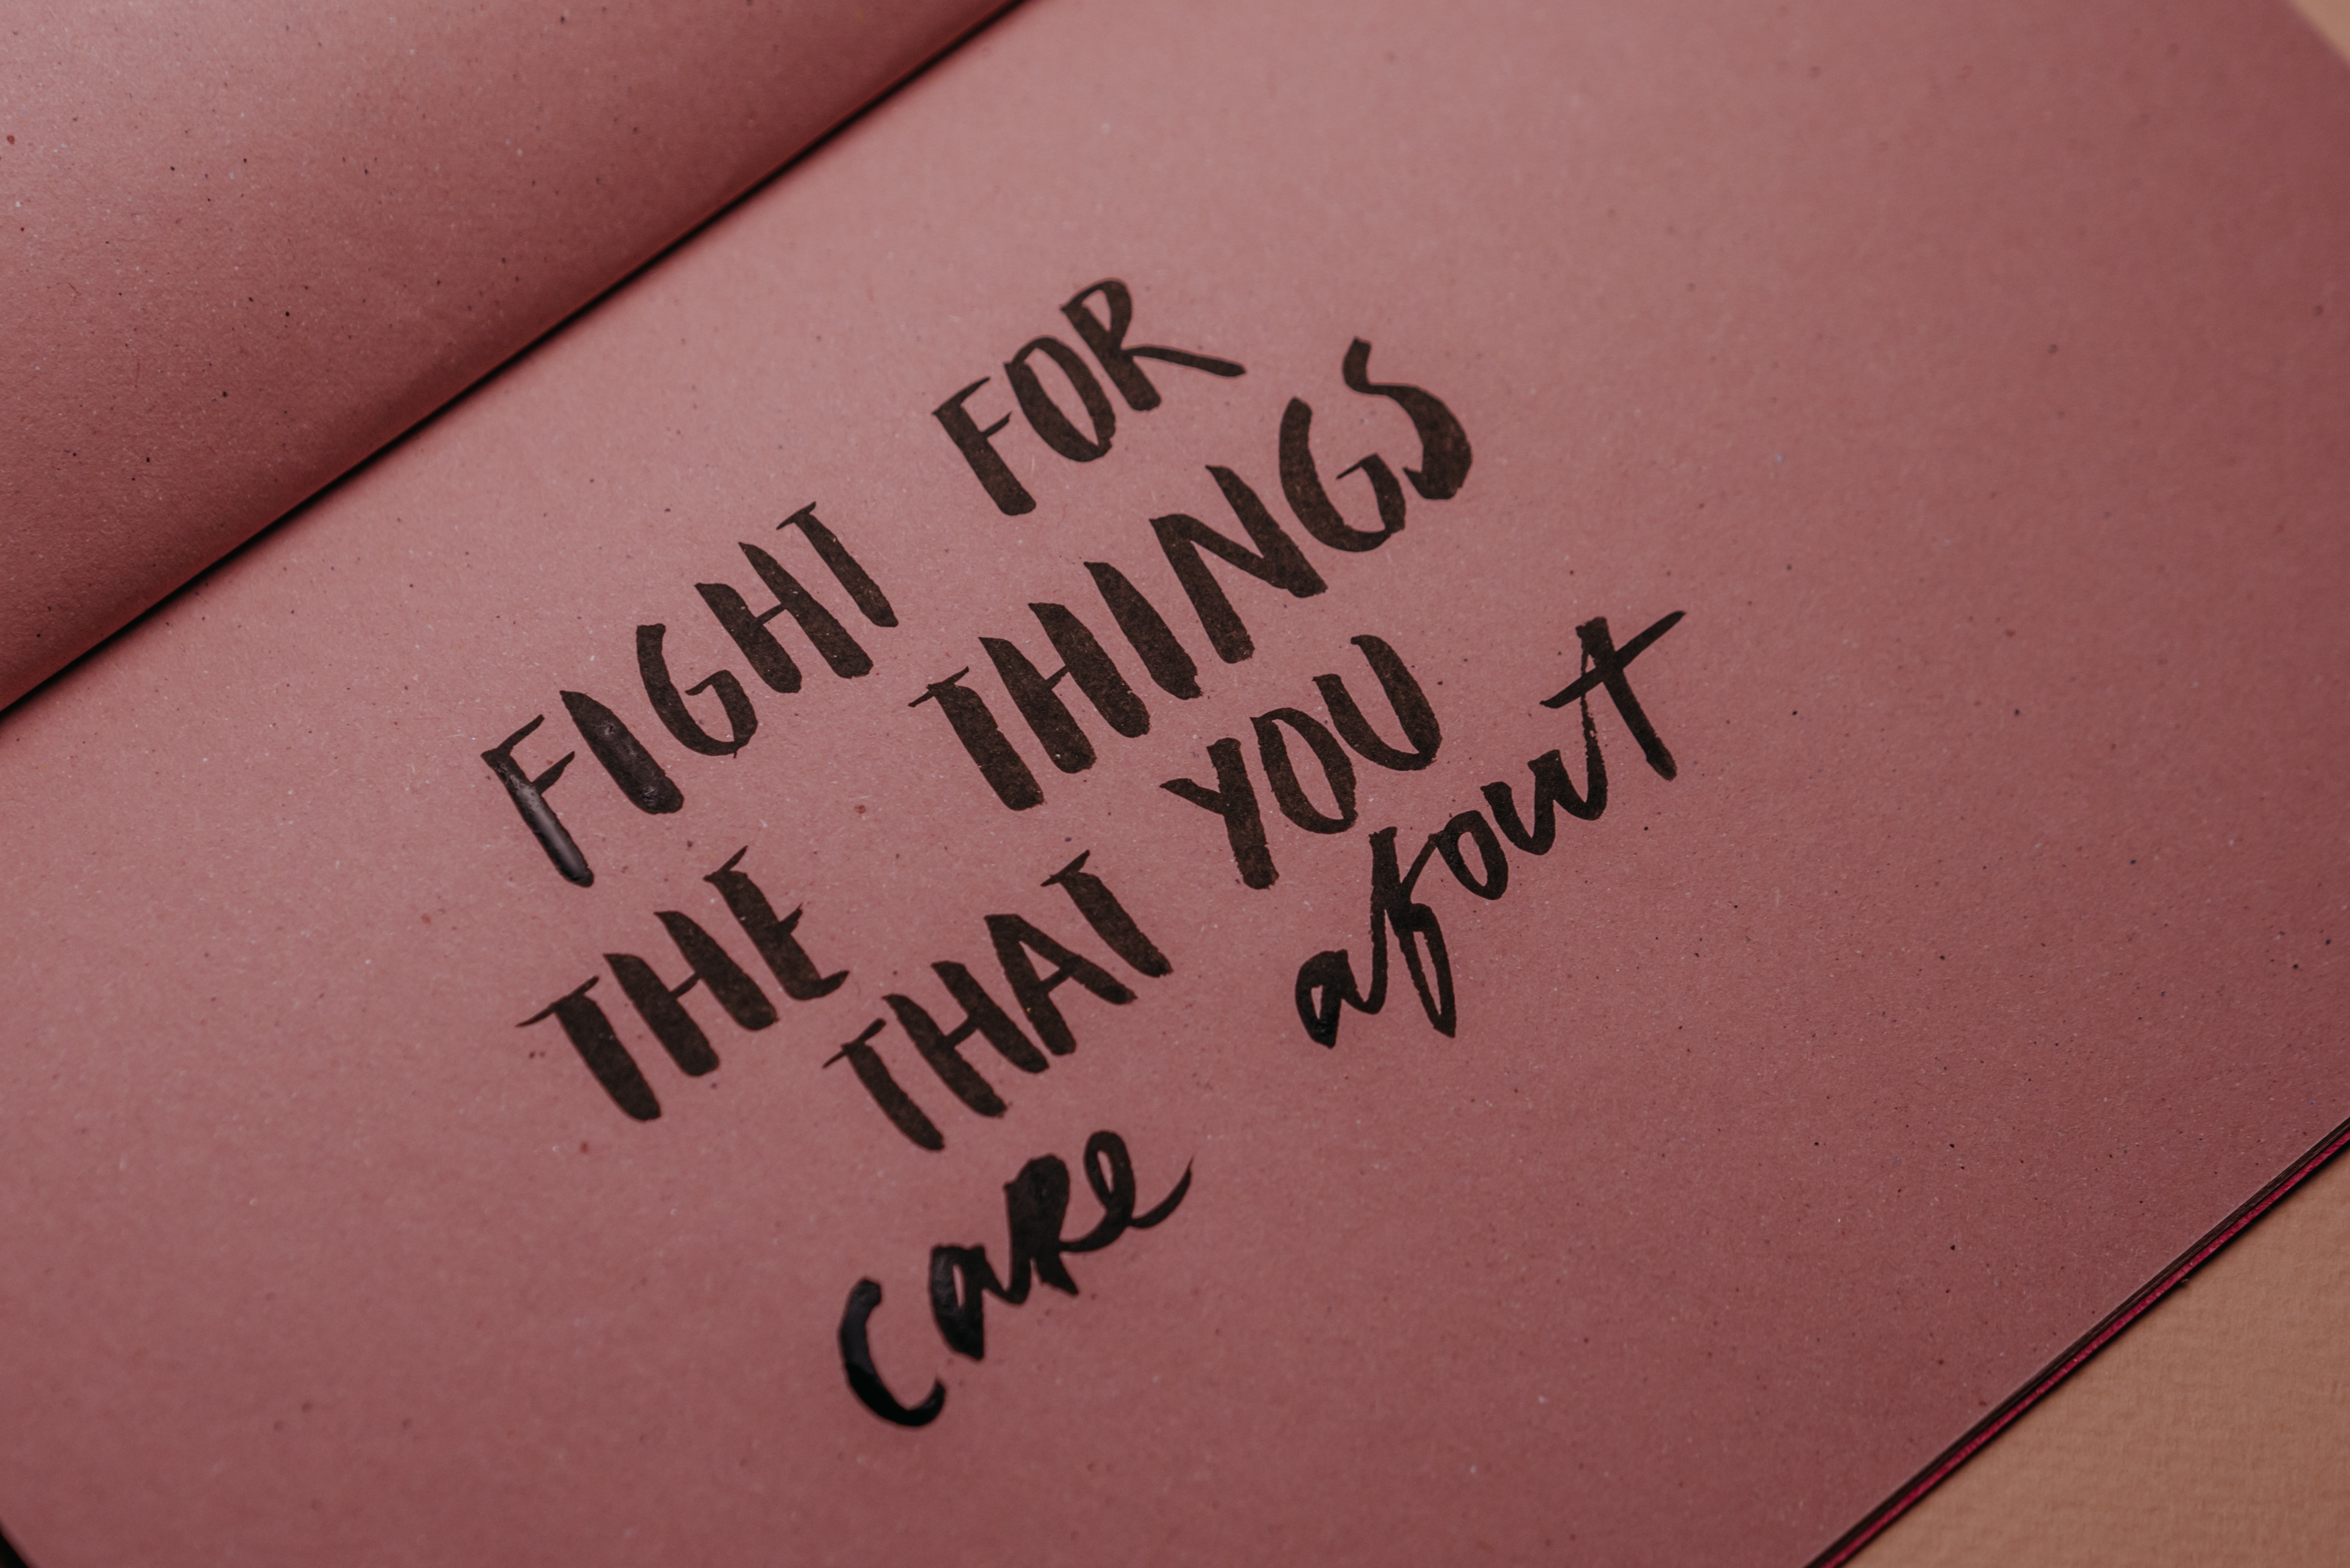 FIGHT FOR
THE THINGS
THAT YOU
caRe about